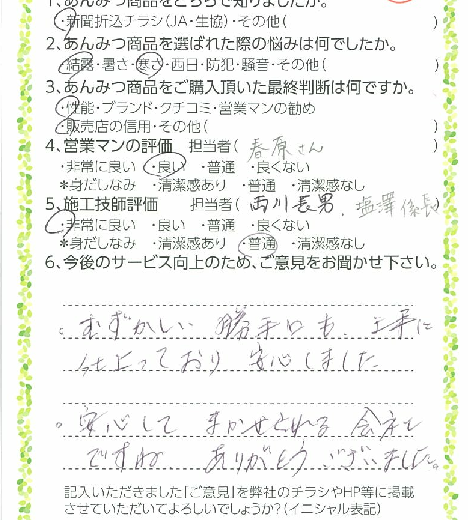 1、あんみつ商品をどちらで知りましたか。
・新聞折込チラシ(JA・生協)・その他( )
2、あんみつ商品を選ばれた際の悩みは何でしたか。
結露・暑さ・寒さ・西日・防犯・騒音・その他( )
3、あんみつ商品をご購入頂いた最終判断は何ですか。
・性能・ブランド・クチコミ・営業マンの勧め
・販売店の信用・その他( )
4、営業マンの評価 担当者( 春原さん )
・非常に良い ・良い ・普通 ・良くない
*身だしなみ ・清潔感あり ・普通 ・清潔感なし
5、施工技師評価 担当者( 西川長男、塩澤係長 )
・非常に良い ・良い ・普通 ・良くない
*身だしなみ ・清潔感あり ・普通 ・清潔感なし
6、今後のサービス向上のため、ご意見をお聞かせ下さい。
。むずかしい 勝手口も 上手に
仕上っており 安心しました
。安心して まかせとれる 会社
ですね ありがとうございました。
記入いただきました「ご意見」を弊社のチラシやHP等に掲載
させていただいてよろしいでしょうか?(イニシャル表記)